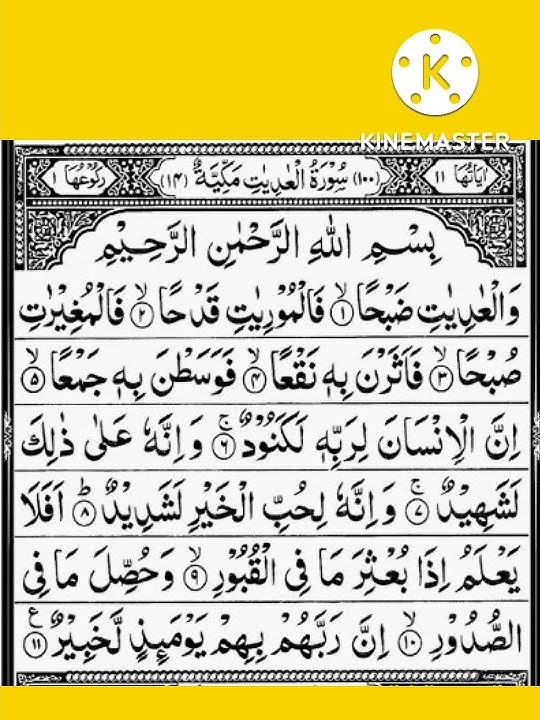 K
KINEMASTER
اٰيَاتُهَا ١١
(١٠٠) سُوْرَةُ الْعٰدِيٰتِ مَكِّيَّةٌ (١٤)
رُكُوْعُهَا ١
بِسْمِ اللهِ الرَّحْمٰنِ الرَّحِيْمِ
وَالْعٰدِيٰتِ ضَبْحًا ۙ﴿١﴾ فَالْمُوْرِيٰتِ قَدْحًا ۙ﴿٢﴾ فَالْمُغِيْرٰتِ
صُبْحًا ۙ﴿٣﴾ فَاَثَرْنَ بِهٖ نَقْعًا ۙ﴿٤﴾ فَوَسَطْنَ بِهٖ جَمْعًا ۙ﴿٥﴾
اِنَّ الْاِنْسَانَ لِرَبِّهٖ لَكَنُوْدٌ ۚ﴿٦﴾ وَاِنَّهٗ عَلٰى ذٰلِكَ
لَشَهِيْدٌ ۚ﴿٧﴾ وَاِنَّهٗ لِحُبِّ الْخَيْرِ لَشَدِيْدٌ ؕ﴿٨﴾ اَفَلَا
يَعْلَمُ اِذَا بُعْثِرَ مَا فِى الْقُبُوْرِ ۙ﴿٩﴾ وَحُصِّلَ مَا فِى
الصُّدُوْرِ ۙ﴿١٠﴾ اِنَّ رَبَّهُمْ بِهِمْ يَوْمَئِذٍ لَّخَبِيْرٌ ﴿١١﴾ ع